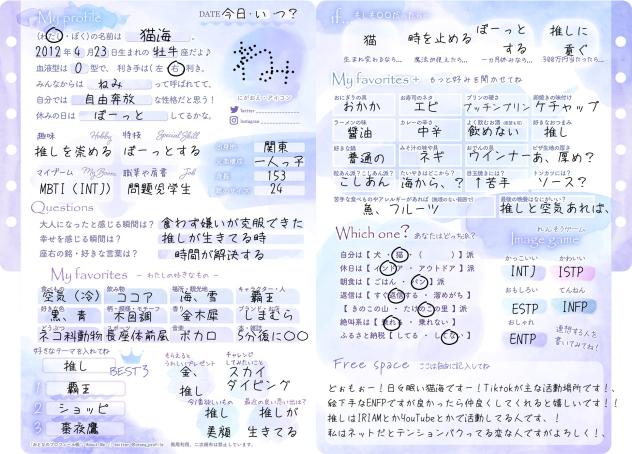 My profile
DATE 今日・いつ？
(わたし・ぼく)の名前は 猫海 。
2012年4月23日生まれの 牡牛 座だよ♪
血液型は O 型で、利き手は(左・右)利き。
みんなからは ねみ って呼ばれてて、
自分では 自由奔放 な性格だと思う！
休みの日は ぼーっと してるかな。
にがおえ・アイコン
Twitter
Instagram
趣味 Hobby 特技 Special Skill
推しを崇める ぼーっとする
マイブーム My Boom 職業や肩書 Job
MBTI(INTJ) 問題児学生
出身地 関東
家族構成 一人っ子
身長 153
靴のサイズ 24
Questions
大人になったと感じる瞬間は？ 食わず嫌いが克服できた
幸せを感じる瞬間は？ 推しが生きてる時
座右の銘・好きな言葉は？ 時間が解決する
My favorites - わたしの好きなもの -
食べもの 飲み物 場所・観光地 キャラクター・人
空気(冷) ココア 海、雪 覇王
好きな色 柄・模様・モチーフ 香り ブランド・お店
黒、青 木目調 金木犀 しまむら
どうぶつ スポーツ 音楽 本・雑誌
ネコ科動物 長座体前屈 ボカロ 5分後に〇〇
好きなテーマを入れてね
推し BEST3
1 覇王
2 ショッピ
3 亜夜鷹
もらえるとうれしいプレゼント
金、推し
チャレンジしてみたいこと
スカイダイビング
今1番欲しいもの
推し 美顔
最近の良い思い出は？
推しが生きてる
if... もしも〇〇だったら…
猫 時を止める ぼーっとする 推しに貢ぐ
生まれ変わるなら… 魔法が使えたら… 一ヵ月休みなら… 300万円当たったら…
My favorites + もっと好みを聞かせてね
おにぎりの具 お寿司のネタ プリンの硬さ 卵焼きの味付け
おかか エビ プッチンプリン ケチャップ
ラーメンの味 カレーの辛さ よく飲むお酒 好きなおつまみ
醤油 中辛 飲めない 推し
好きな鍋 みそ汁の味や具 おでんの具 ピザ生地の厚さ
普通の ネギ ウインナー あ、厚め？
粒あん派？こしあん派？ たいやきはどこから？ 目玉焼きには？ トンカツには？
こしあん 海から、？ ↑苦手 ソース？
苦手な食べものやアレルギーがあれば
魚、フルーツ
最後の晩餐はなにがいい？
推しと空気あれば、
Which one? あなたはどっち派？
自分は【犬・猫・( )】派
休日は【インドア・アウトドア】派
朝食は【ごはん・パン】派
返信は【すぐ返信する・溜めがち】
【きのこの山・たけのこの里】派
絶叫系は【乗れる・乗れない】
ふるさと納税【してる・してない】
れんそうゲーム
Image game
かっこいい かわいい
INTJ ISTP
おもしろい てんねん
ESTP INFP
おしゃれ
ENTP
連想する人を書いてみてね！
Free space ここは自由に記入してね
どぉもぉー！日々眠い猫海ですー！Tiktokが主な活動場所です！、
絵下手なENFPですが良かったら仲良くしてくれると嬉しいです！！
推しはIRIAMとかYouTubeとかで活動してる人です、！
私はネットだとテンションバウってる変な人ですがよろしく！、